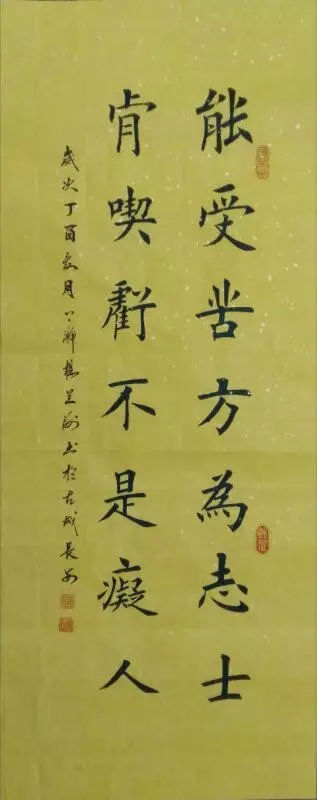 能受苦方為志士
肯喫虧不是癡人
歲次丁酉
月
楊
書於古城長安